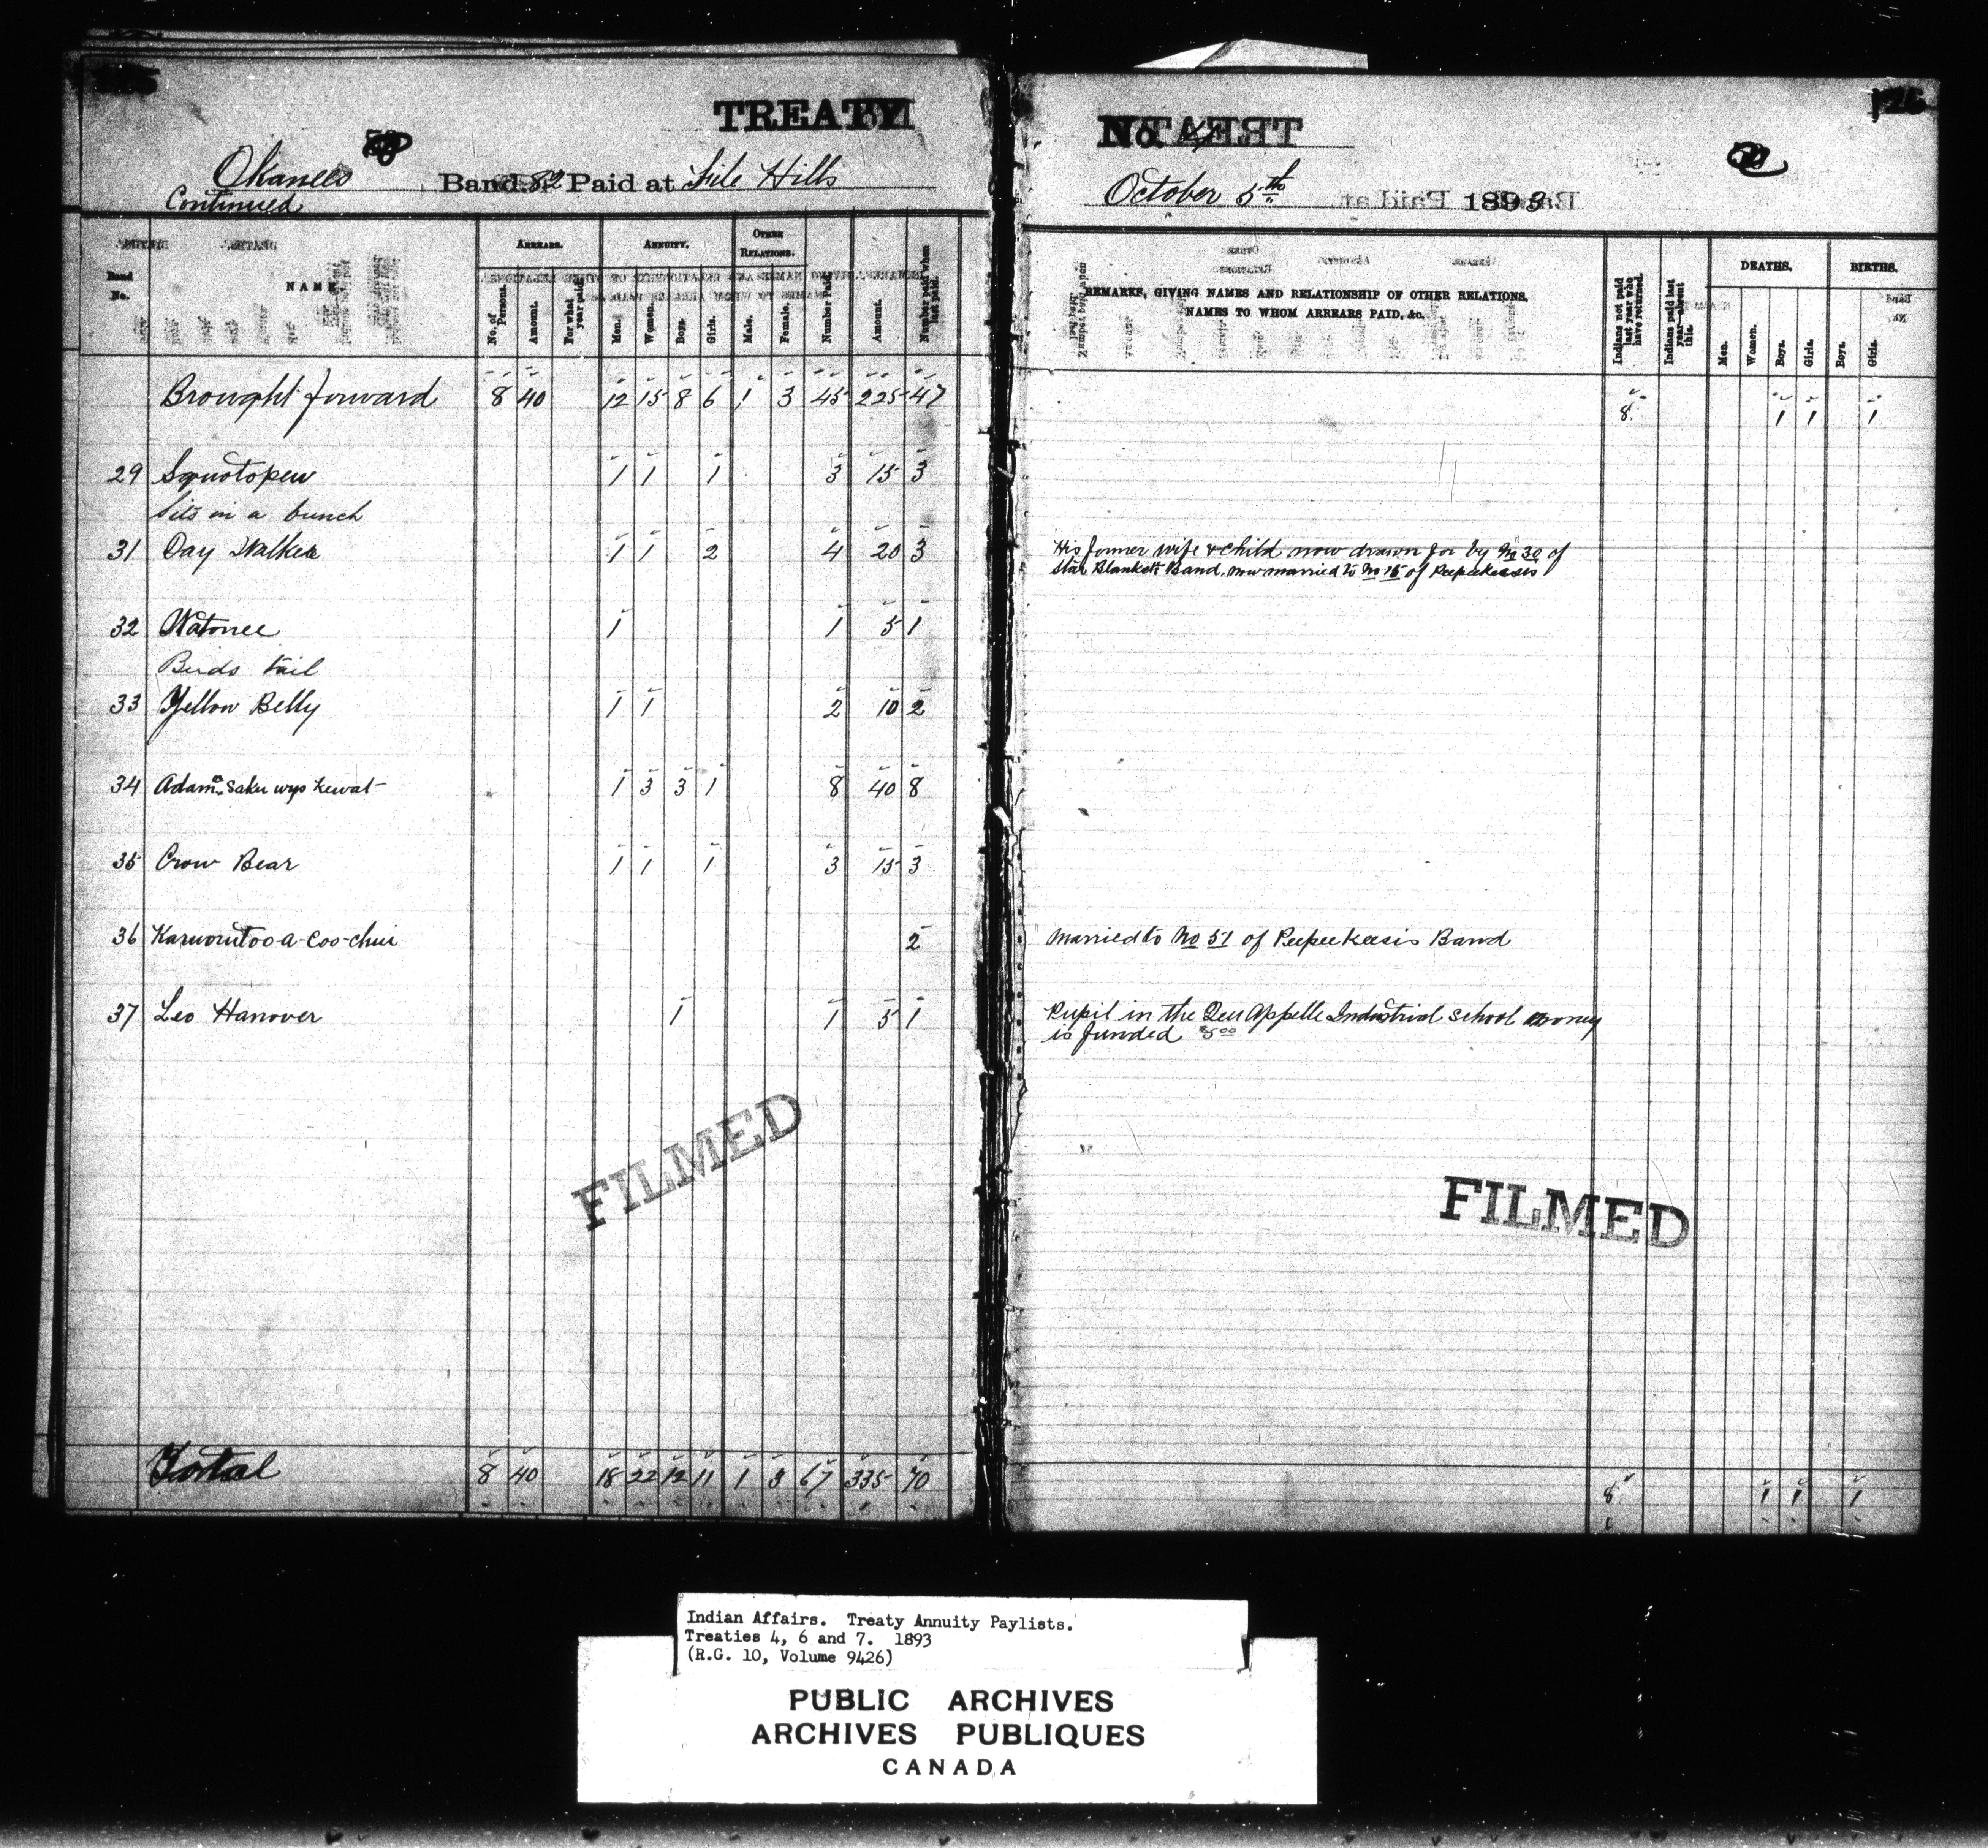 TREATY
No. 4
Okanees Band 82 Paid at File Hills
Continued
October 5th 1893
Band No.
NAME
ARREARS.
No. of Persons.
Amount.
For what year paid.
ANNUITY.
Men.
Women.
Boys.
Girls.
OTHER RELATIONS.
Male.
Female.
Number Paid.
Amount.
Number paid when last paid.
REMARKS, GIVING NAMES AND RELATIONSHIP OF OTHER RELATIONS,
NAMES TO WHOM ARREARS PAID, &c.
Indians not paid last year who have returned.
Indians paid last year absent this.
DEATHS.
Men.
Women.
Boys.
Girls.
BIRTHS.
Boys.
Girls.
Brought forward 8 40 12 15 8 6 1 3 45 225 47 8 1 1 1
29 Squotopew 1 1 1 3 15 3
Sits in a bunch
31 Day Walker 1 1 2 4 20 3 His former wife & child now drawn for by No 30 of
Star Blankets Band, now married to No 15 of Peepeekeesis
32 Watonee 1 1 5 1
Birds tail
33 Yellow Belly 1 1 2 10 2
34 Adam 1 3 3 1 8 40 8
35 Crow Bear 1 1 1 3 15 3
36 2 Married to No 51 of Peepeekeesis Band
37 Leo Hanover 1 1 5 1 Pupil in the Qu'Appelle Industrial School money
is funded $5.00
FILMED
FILMED
Total 8 40 18 22 12 11 1 3 67 335 70 8 1 1 1
Indian Affairs. Treaty Annuity Paylists.
Treaties 4, 6 and 7. 1893
(R.G. 10, Volume 9426)
PUBLIC ARCHIVES
ARCHIVES PUBLIQUES
CANADA